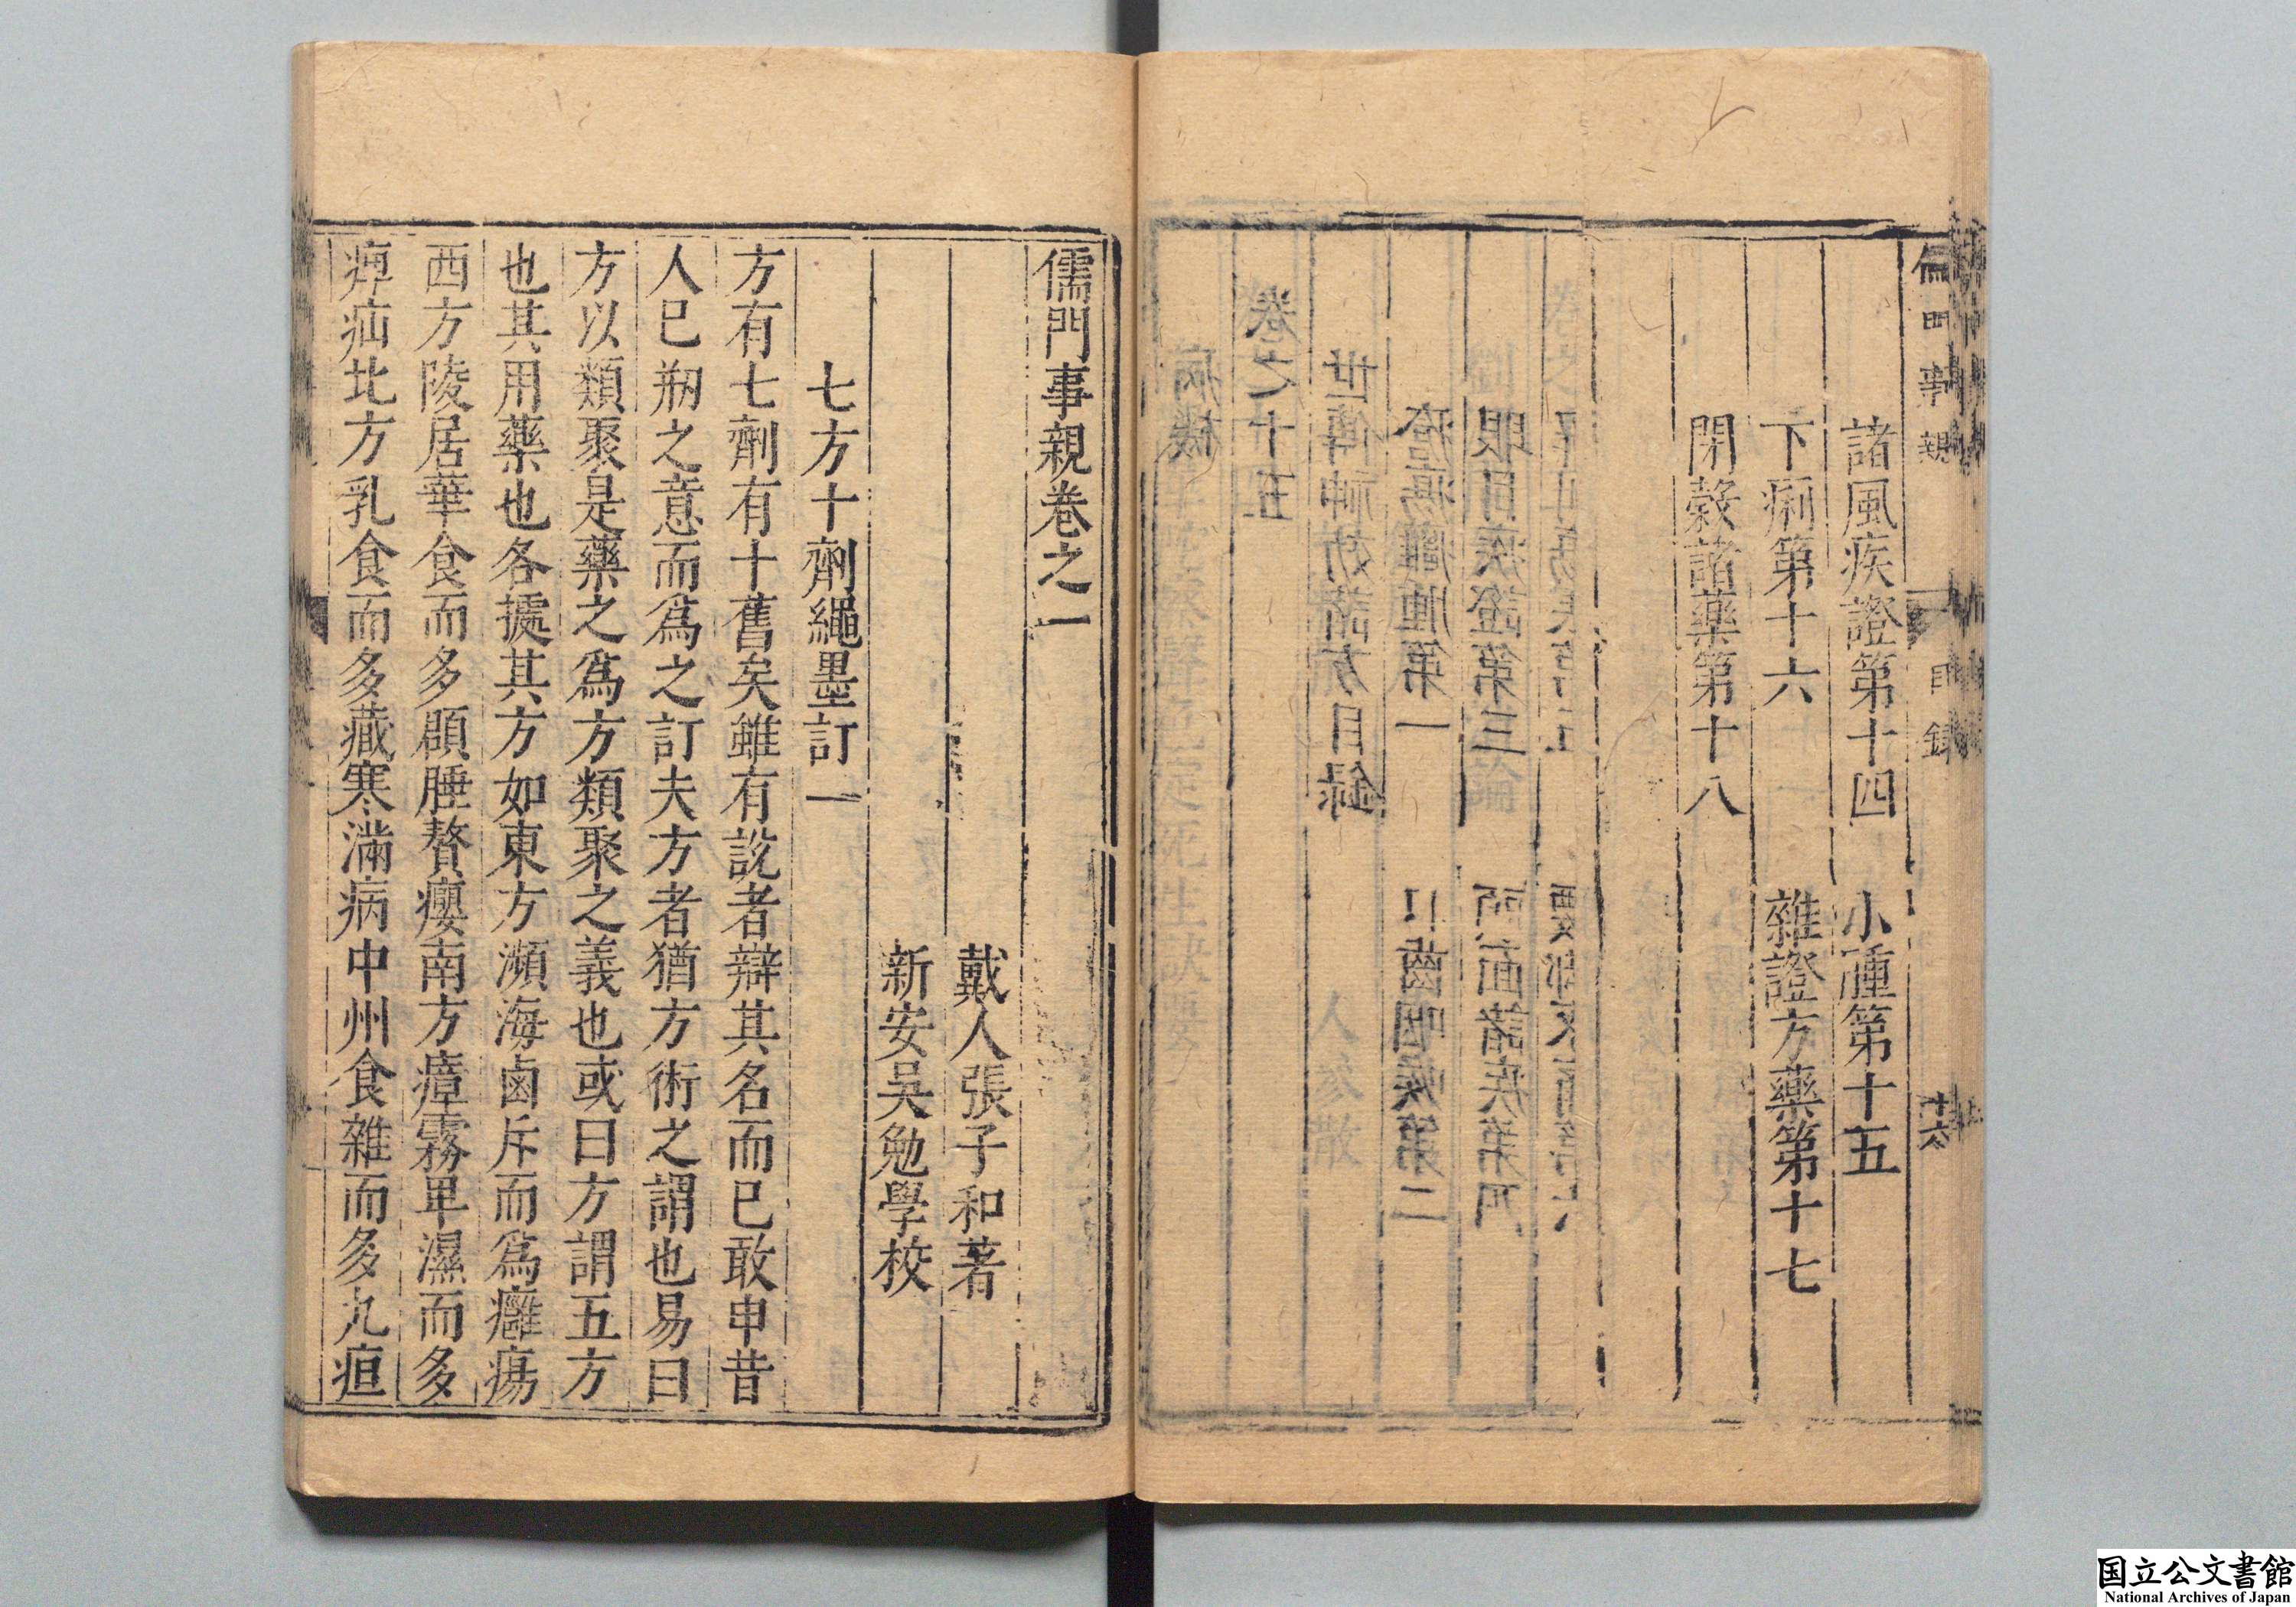 儒門事親
目錄
十六
諸風疾證第十四　小腫第十五
下痢第十六　雜證方藥第十七
閉穀諸藥第十八
儒門事親卷之一
戴人張子和著
新安吳勉學校
七方十劑繩墨訂一
方有七劑有十舊矣雖有說者辯其名而已敢申昔
人已剏之意而為之訂夫方者猶方術之謂也易曰
方以類聚是藥之為方類聚之義也或曰方謂五方
也其用藥也各據其方如東方瀕海鹵斥而為癰瘍
西方陵居華食而多頵腄贅癭南方瘴霧卑濕而多
痺疝北方乳食而多藏寒滿病中州食雜而多九疸
国立公文書館
National Archives of Japan